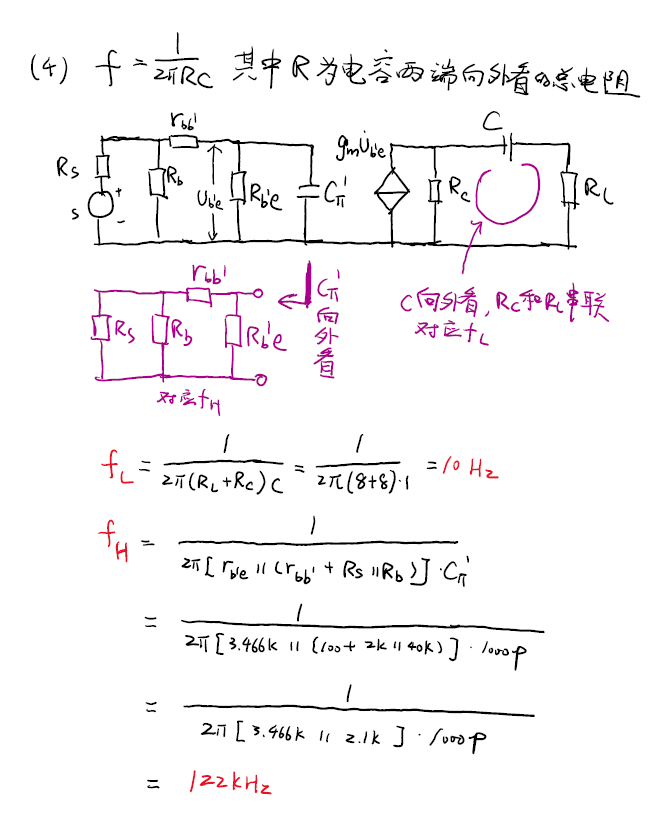 (4) f = 1/2πRC 其中R为电容两端向外看的总电阻
rbb' C
Rs Rb Ub'e Rb'e Cπ' gmU̇b'e Rc RL
s + -
rbb' Cπ'向外看 C向外看,Rc和RL串联
Rs Rb Rb'e 对应fL
对应fH
fL = 1/2π(RL+Rc)C = 1/2π(8+8)·1 = 10 Hz
fH = 1/2π[rb'e || (rbb' + Rs || Rb)]·Cπ'
= 1/2π[3.466k || (100 + 2k || 40k)]·1000p
= 1/2π[3.466k || 2.1k]·1000p
= 122kHz